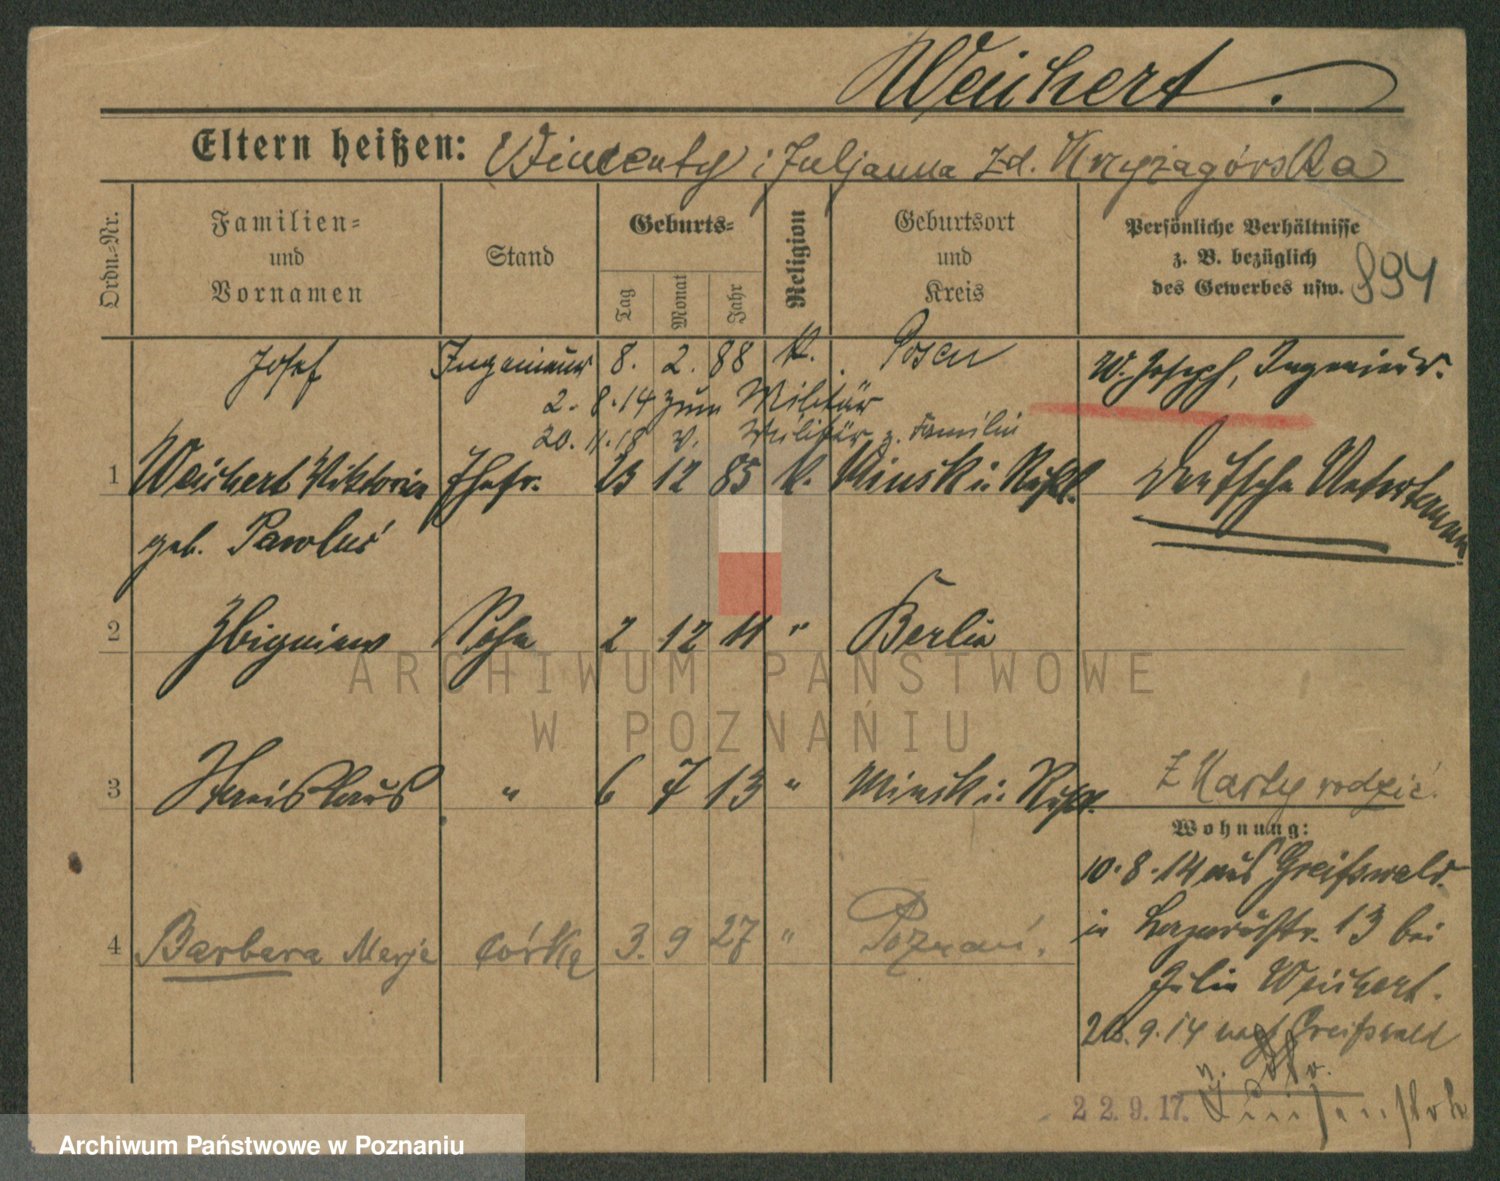 Weichert.
Eltern heißen: Wincenty i Juljanna zd. Krzyżagórska
Ordn.-Nr.
Familien- und Vornamen
Stand
Geburts-
Tag Monat Jahr
Religion
Geburtsort und Kreis
Persönliche Verhältnisse
z. B. bezüglich
des Gewerbes usw. 894
Josef Ingenieur 8. 2. 88 K. Posen W. Joseph, Ingenieur.
2. 8. 14 zum Militär
20. 11. 18 v. Militär z. Familie
1 Weichert Viktoria Ehefr. 23 12 85 K. Minsk i. Rußl. Deutsche Untertanen
geb. Pawluć
2 Zbigniew Sohn 2 12 11 " Berlin
3 Stanislaus " 6 7 13 " Minsk i. Rußl. Z Karty rodzić.
Wohnung:
10. 8. 14 aus Greifswald
4 Barbara Marja córka 3. 9 27 " Poznań. in 13 bei
Julie Weichert.
28. 9. 14 nach Greifswald
22. 9. 17.
ARCHIWUM PAŃSTWOWE
W POZNANIU
Archiwum Państwowe w Poznaniu